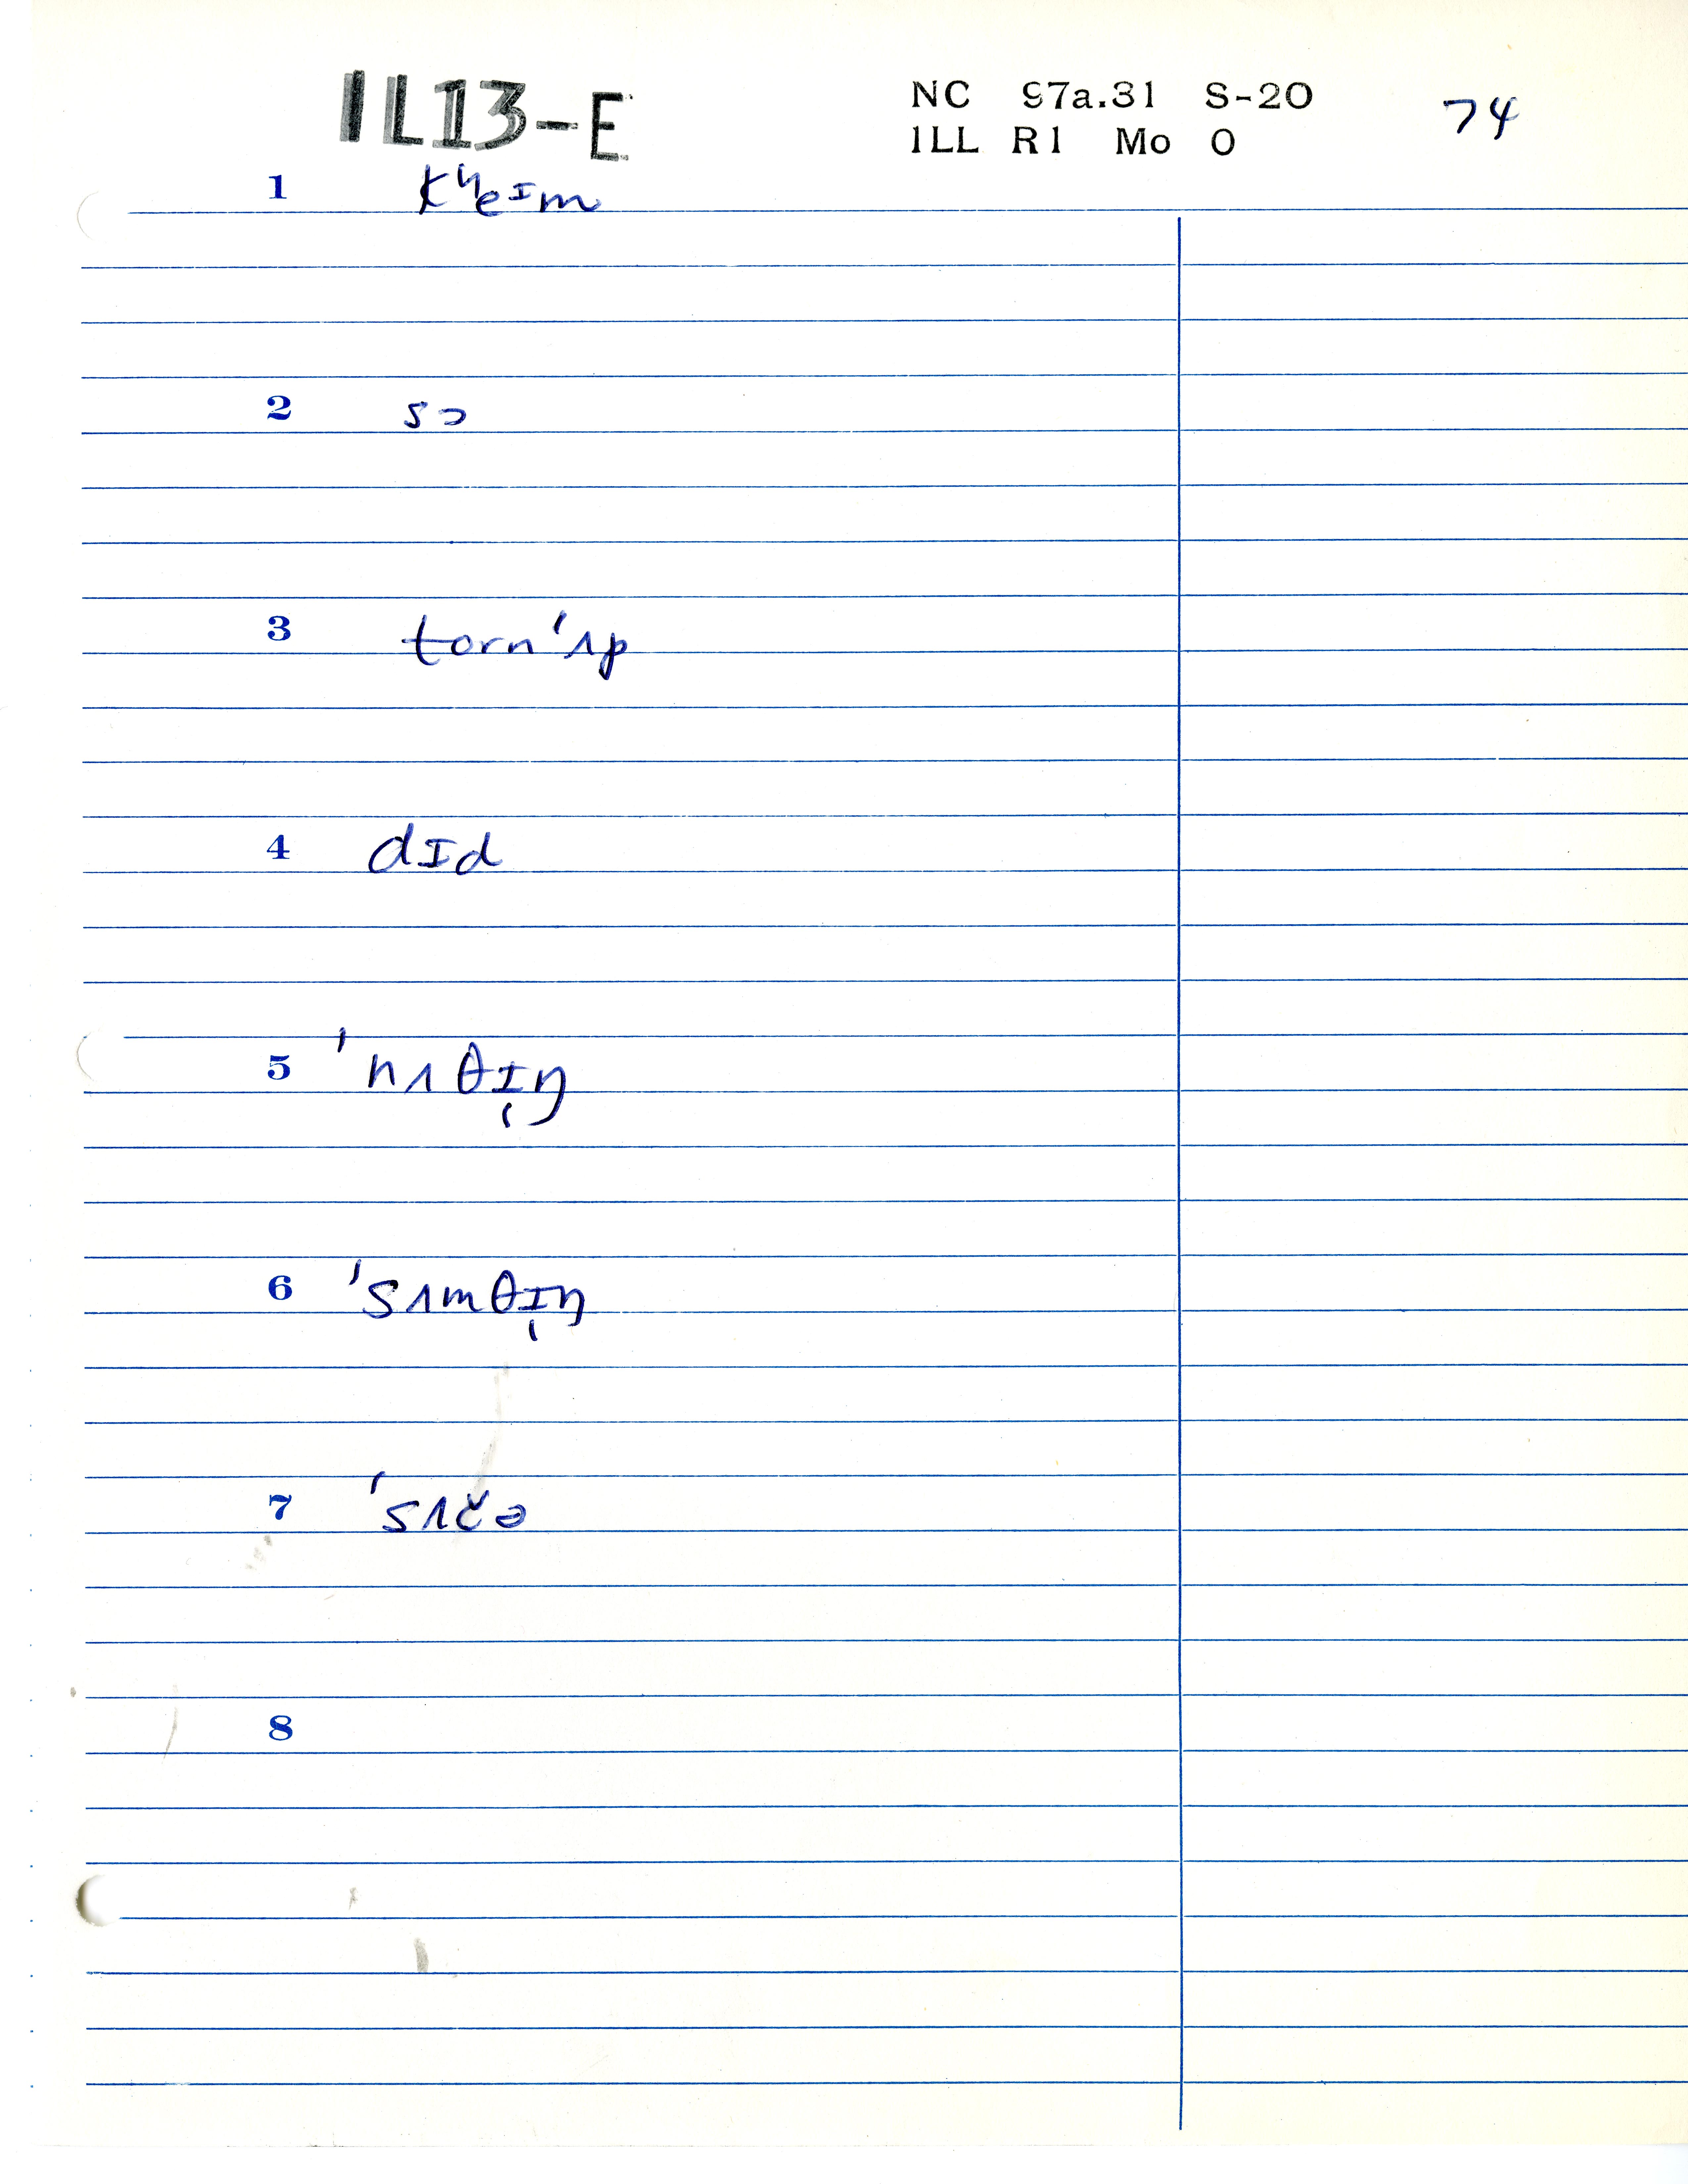 IL13-E
NC 97a.31 S-20 74
ILL R1 Mo O
1 kʰeɪm
2 sɔ
3 tɔrn'ʌp
4 dɪd
5 'nʌθɪ̩ŋ
6 'sʌmθɪ̩ŋ
7 'sʌčə
8